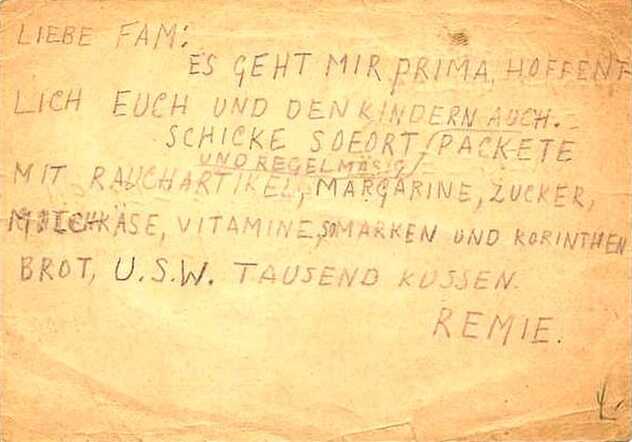 LIEBE FAM:
ES GEHT MIR PRIMA, HOFFENT
LICH EUCH UND DEN KINDERN AUCH.
SCHICKE SOFORT / PACKETE
UND REGELMÄSIG /
MIT RAUCHARTIKEL, MARGARINE, ZUCKER,
KÄSE, VITAMINE, 50 MARKEN UND KORINTHEN
BROT, U.S.W. TAUSEND KUSSEN.
REMIE.